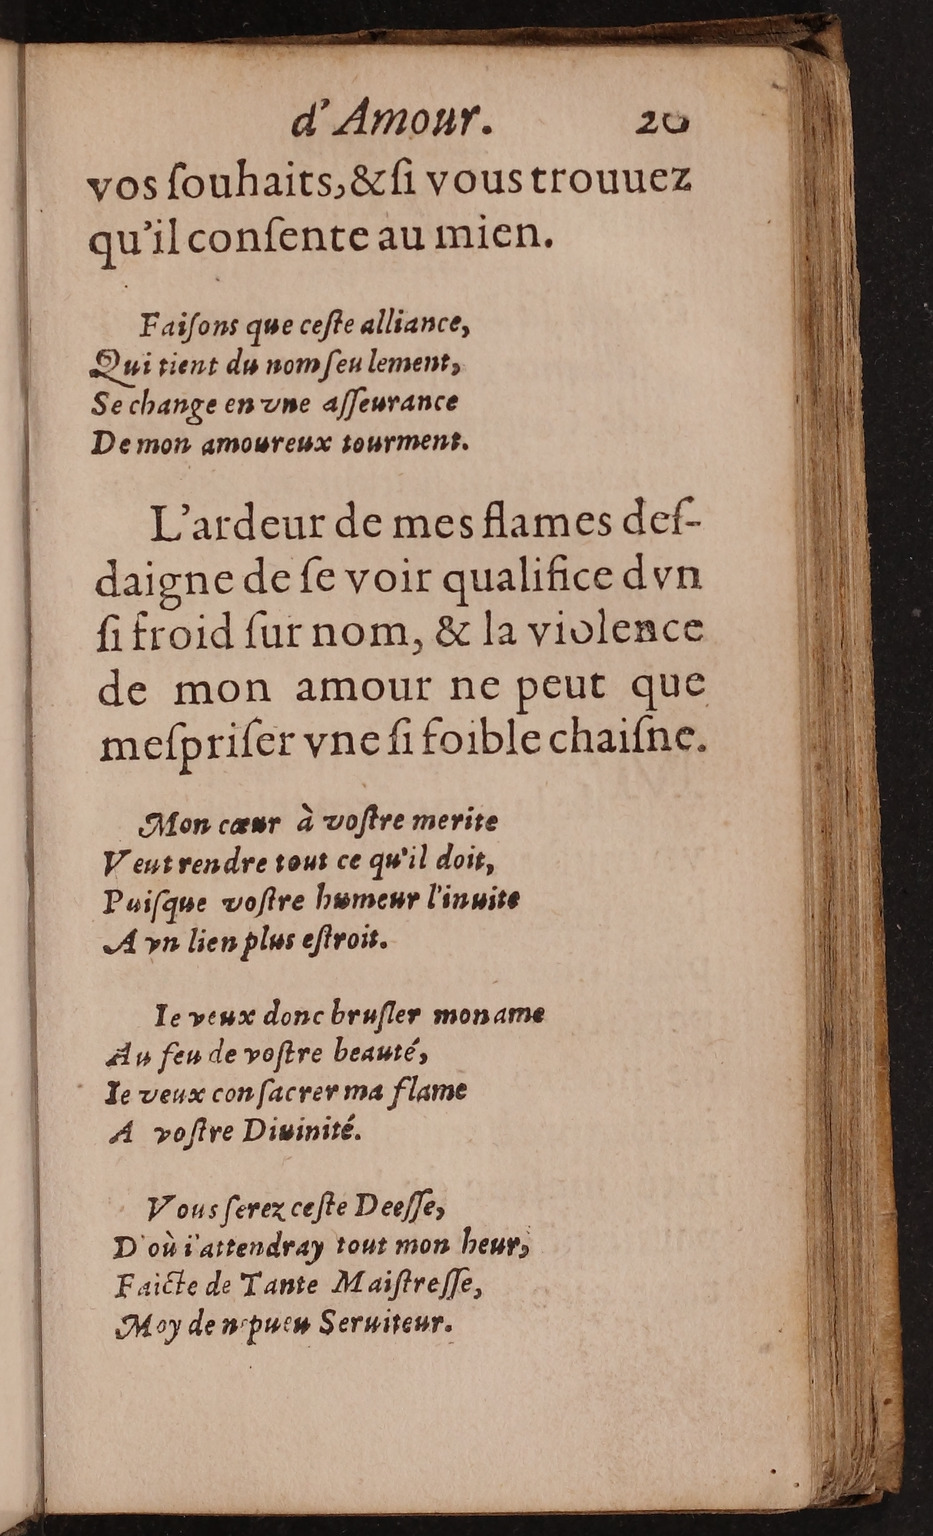 d'Amour. 20
vos ſouhaits,&ſi vous trouuez
qu'il conſente au mien.
Faiſons que ceſte alliance,
Qui tient du nom ſeulement,
Se change en vne aſſeurance
De mon amoureux tourment.
L'ardeur de mes flames deſ-
daigne de ſe voir qualifice dvn
ſi froid ſur nom, & la violence
de mon amour ne peut que
meſpriſer vne ſi foible chaiſne.
Mon cœur à voſtre merite
Veut rendre tout ce qu'il doit,
Puiſque voſtre humeur l'inuite
A vn lien plus eſtroit.
Ie veux donc bruſler mon ame
Au feu de voſtre beauté,
Ie veux conſacrer ma flame
A voſtre Diuinité.
Vous ſerez ceſte Deeſſe,
D'où i'attendray tout mon heur,
Faicte de Tante Maiſtreſſe,
Moy de nepueu Seruiteur.